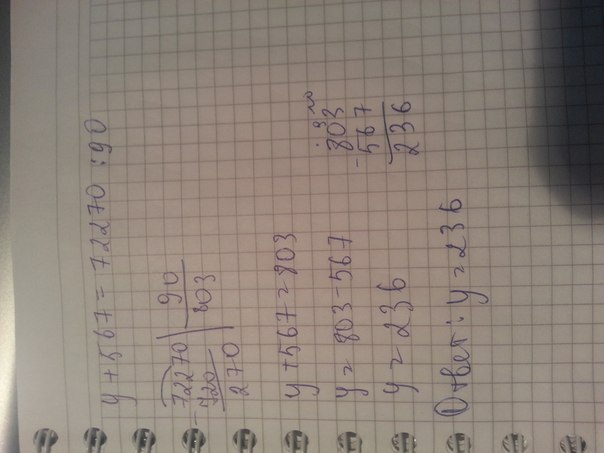 y + 567 = 72270 : 90
- 72270 | 90
720 | 803
270
y + 567 = 803
y = 803 - 567
y = 236
. 9 10
- 803
567
236
Ответ: y = 236